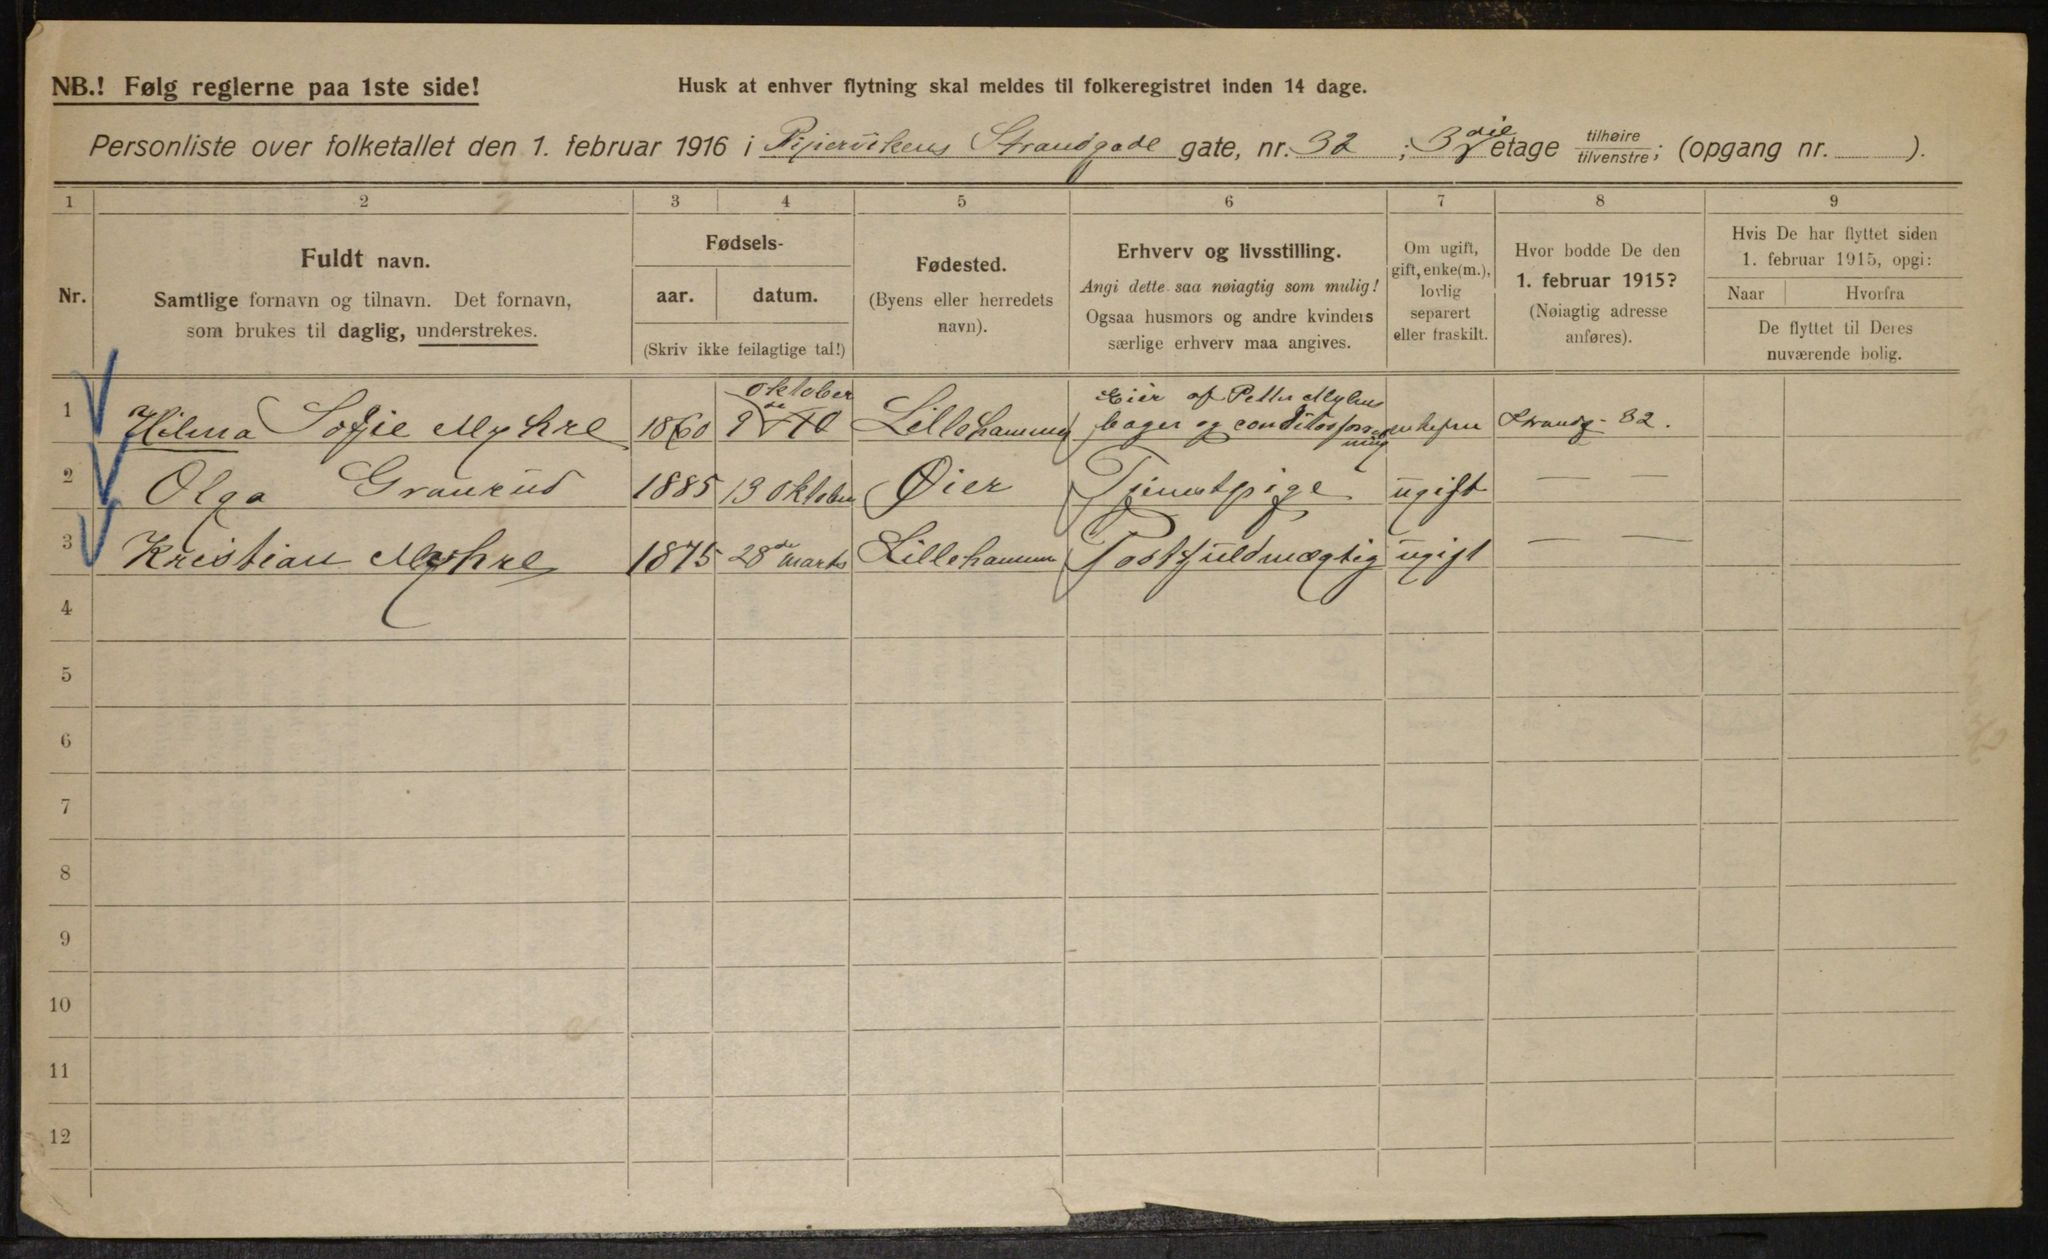 NB.! Følg reglerne paa 1ste side!
Husk at enhver flytning skal meldes til folkeregistret inden 14 dage.
Personliste over folketallet den 1. februar 1916 i Pipervikens Strandgade gate, nr. 32 ; 3die etage tilhøire/tilvenstre; (opgang nr. ).
1 2 3 4 5 6 7 8 9
Nr.
Fuldt navn.
Samtlige fornavn og tilnavn. Det fornavn,
som brukes til daglig, understrekes.
Fødsels-
aar. datum.
(Skriv ikke feilagtige tal!)
Fødested.
(Byens eller herredets
navn).
Erhverv og livsstilling.
Angi dette saa nøiagtig som mulig!
Ogsaa husmors og andre kvinders
særlige erhverv maa angives.
Om ugift,
gift, enke(m.),
lovlig
separert
eller fraskilt.
Hvor bodde De den
1. februar 1915?
(Nøiagtig adresse
anføres).
Hvis De har flyttet siden
1. februar 1915, opgi:
Naar Hvorfra
De flyttet til Deres
nuværende bolig.
1 Hilma Sofie Myhre 1860 9de oktober Lillehammer Eier af Petter Myhres bager og conditorforretning enkefru Strandg. 32.
2 Olga Granrud 1885 13 oktober Øier Tjenestpige ugift — —
3 Kristian Myhre 1875 28de marts Lillehammer Postfuldmægtig ugift — —
4
5
6
7
8
9
10
11
12